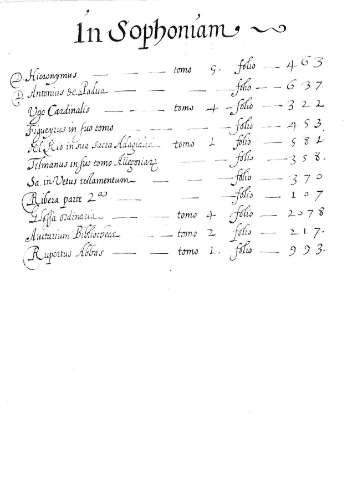 In Sophoniam
D Hieronymus tomo 5. folio 463
D Antonius de Padua folio 637
Ugo Cardinalis tomo 4 folio 322
Figueyrus in suo tomo folio 453
Del Rio in sua sacra Adagialia tomo 2 folio 582
Titmanus in suo tomo Allegoriar folio 358.
Sa. in Vetus testamentum folio 370
Ribera parte 2 folio 107
Glossa ordinaria tomo 4 folio 2078
Auctarium Bibliothecæ tomo 2 folio 217.
Rupertus Abbas tomo 1. folio 993.